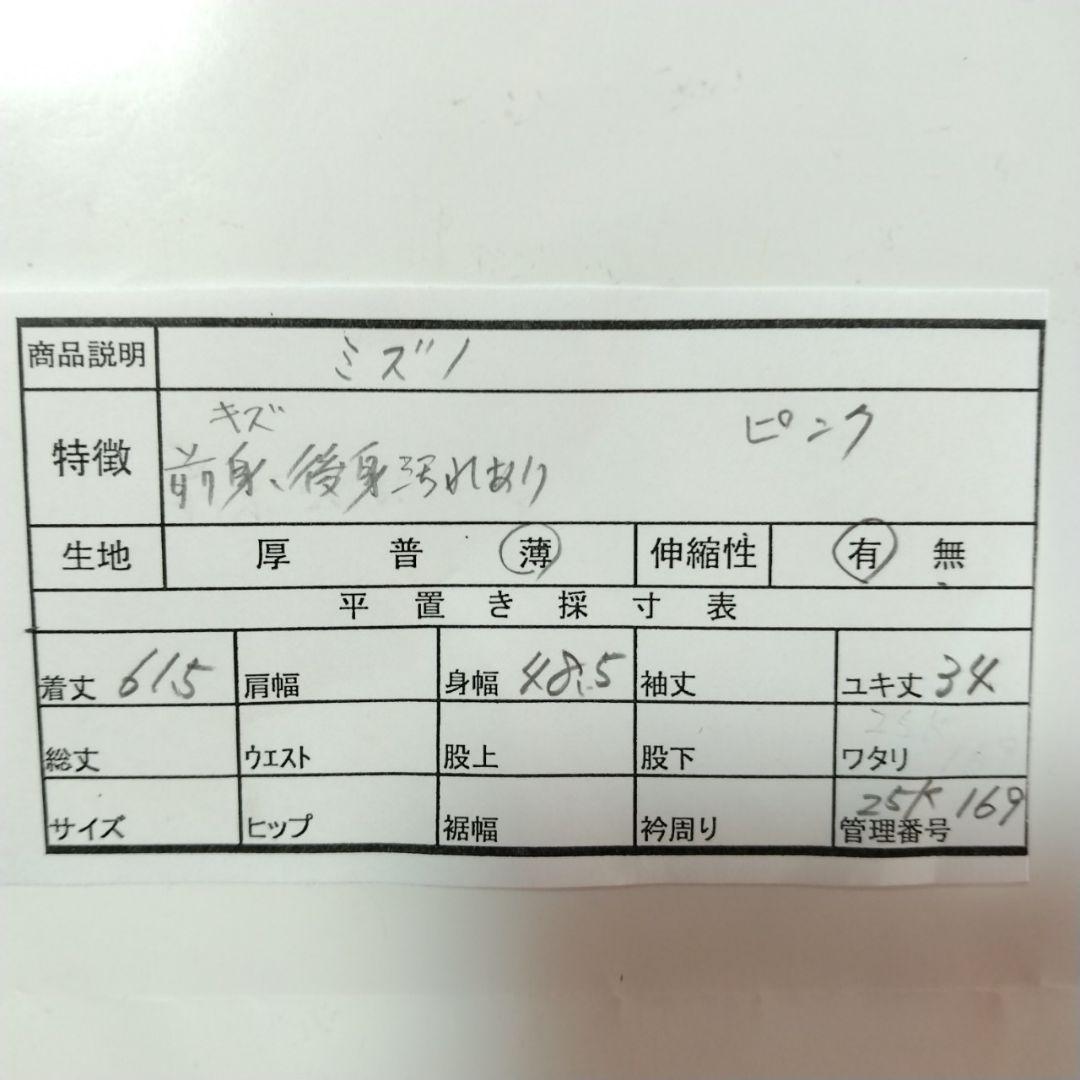 商品説明 ミズノ
キズ ピンク
特徴 前身、後身汚れあり
生地 厚 普 薄 伸縮性 有 無
平置き採寸表
着丈 61.5 肩幅 身幅 48.5 袖丈 ユキ丈 34
総丈 ウエスト 股上 股下 ワタリ
サイズ ヒップ 裾幅 衿周り 管理番号 25K 169